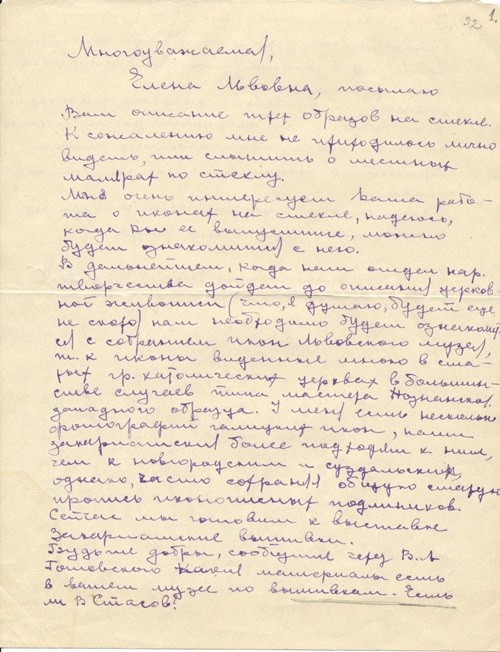 1.
92
Многоуважаемая,
Елена Львовна, посылаю
Вам описание трех образов на стекле.
К сожалению мне не приходилось лично
видеть, или слышать о местных
малярах по стеклу.
Мне очень интересует ваша рабо-
та о иконах на стекле, надеюсь,
когда вы ее выпустите, можно
будет ознакомится с нею.
В дальнейшем, когда наш отдел нар.
творчества дойдет до описания церков-
ной живописи (что, я думаю, будет еще
не скоро) нам необходимо будет ознакомит
ся с собранием икон Львовского музея,
т.к иконы виденные мною в ста-
рых гр. католических церквах в большин-
стве случаев типа мастера
западного образца. У меня есть несколько
фотографий галицких икон, наши
закарпатские более подходят к ним,
чем к новгородским и суздальским,
однако, часто сохраняя общую старую
пропись иконописных подлинников.
Сейчас мы готовим к выставке
Закарпатские вышивки.
Будьте добры, сообщите через В. А
Головского какие материалы есть
в вашем музее по вышивкам. Есть
ли В Стасов?